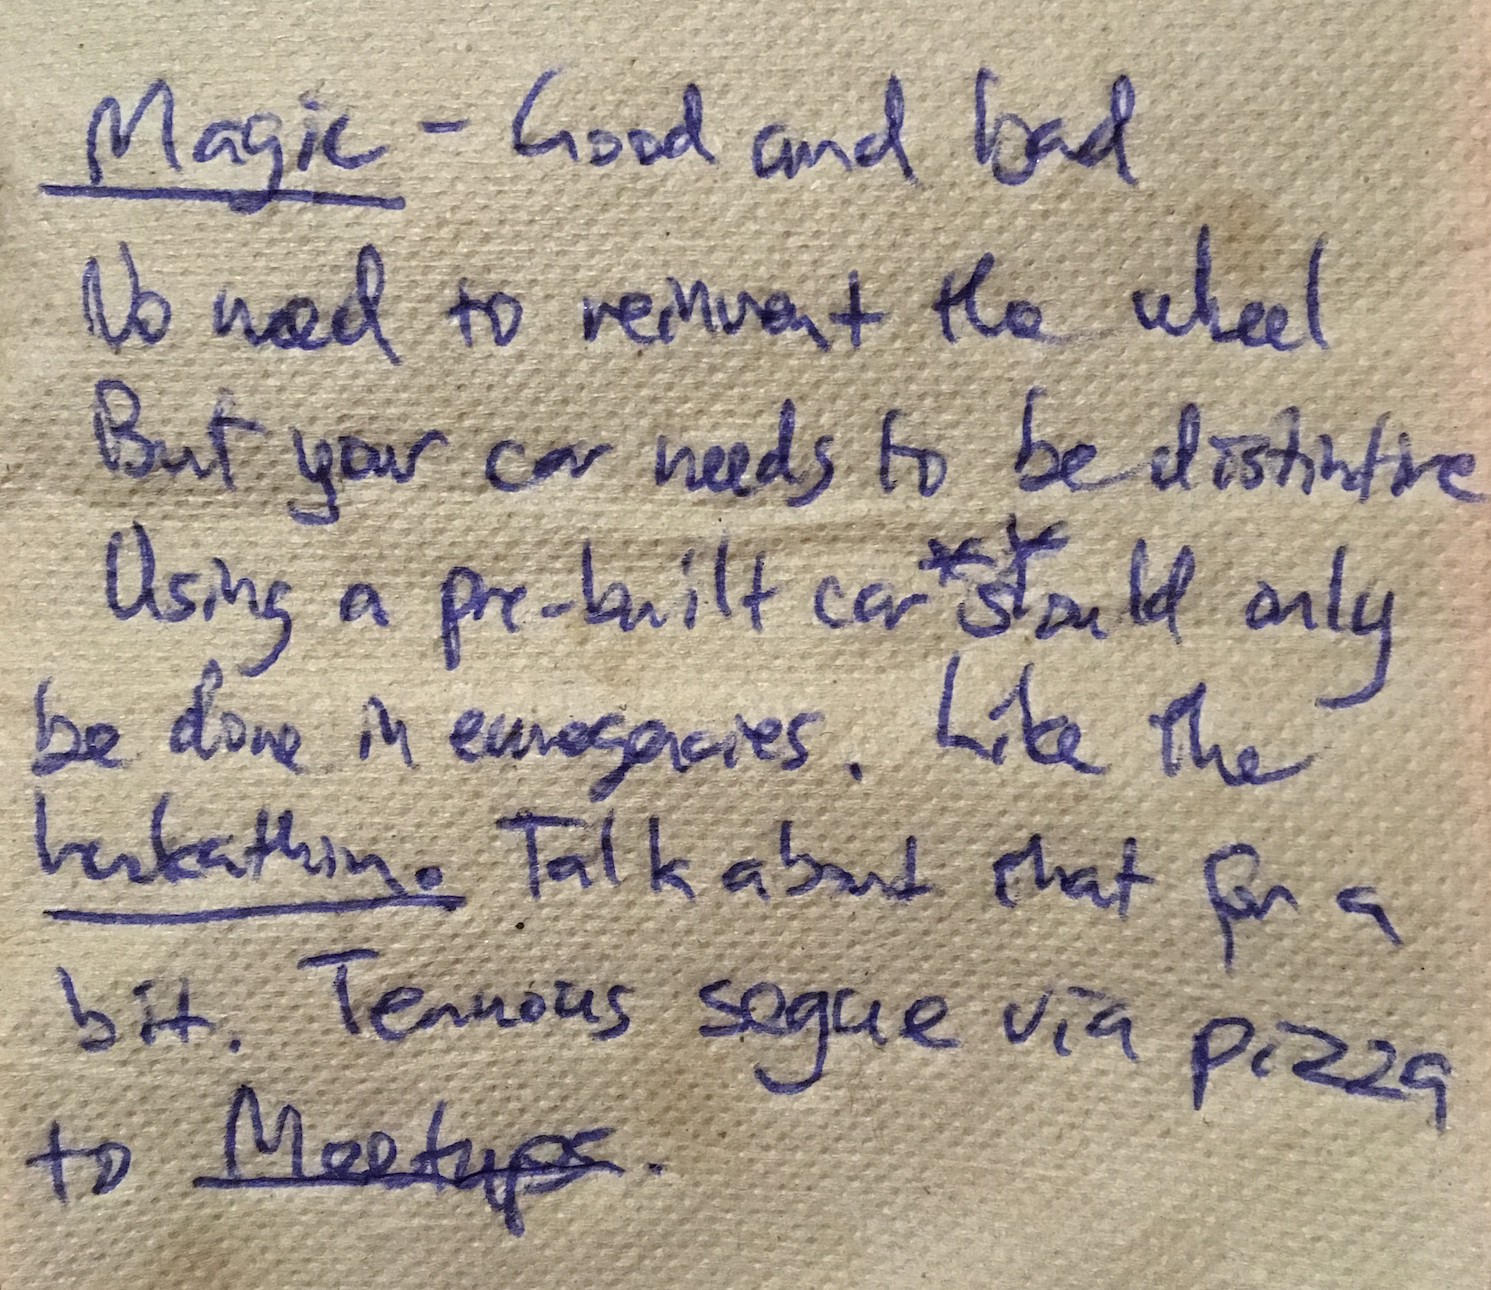 Magic - Good and bad
No need to reinvent the wheel
But your car needs to be distinctive
Using a pre-built car** should only
be done in emergencies. Like the
hackathon. Talk about that for a
bit. Tenuous segue via pizza
to Meetups.